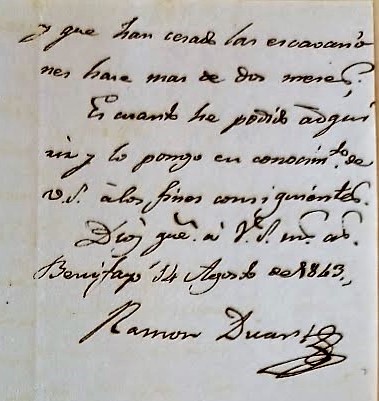 y que han cesado las escavacio
nes hace mas de dos meses,
Es cuanto he podido adqui
rir y lo pongo en conocim.to de
V.S. á los fines consiguientes.
Dios gue. á V.S. ms. as.
Benifayó 14 Agosto de 1843.,
Ramon Duart